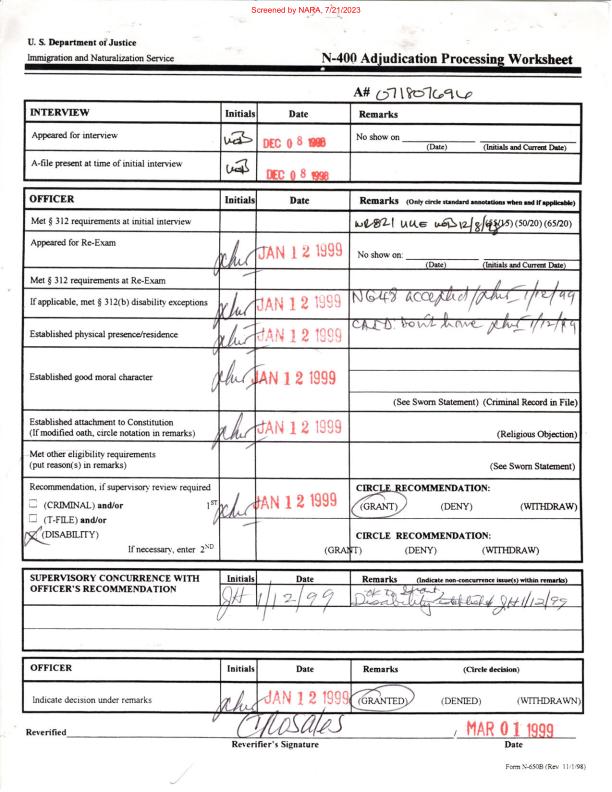 Screened by NARA, 7/21/2023
U. S. Department of Justice
Immigration and Naturalization Service
N-400 Adjudication Processing Worksheet
A# 071807696
INTERVIEW Initials Date Remarks
Appeared for interview DEC 08 1998 No show on
(Date) (Initials and Current Date)
A-file present at time of initial interview DEC 08 1998
OFFICER Initials Date Remarks (Only circle standard annotations when and if applicable)
Met § 312 requirements at initial interview 12/8/98 (50/20) (65/20)
Appeared for Re-Exam JAN 12 1999 No show on:
(Date) (Initials and Current Date)
Met § 312 requirements at Re-Exam
If applicable, met § 312(b) disability exceptions JAN 12 1999 N648 accepted 1/12/99
Established physical presence/residence JAN 12 1999 CARD: Don't have 1/12/99
Established good moral character JAN 12 1999
(See Sworn Statement) (Criminal Record in File)
Established attachment to Constitution JAN 12 1999
(If modified oath, circle notation in remarks) (Religious Objection)
Met other eligibility requirements
(put reason(s) in remarks) (See Sworn Statement)
Recommendation, if supervisory review required JAN 12 1999 CIRCLE RECOMMENDATION:
(CRIMINAL) and/or 1ST (GRANT) (DENY) (WITHDRAW)
(T-FILE) and/or
(DISABILITY) CIRCLE RECOMMENDATION:
If necessary, enter 2ND (GRANT) (DENY) (WITHDRAW)
SUPERVISORY CONCURRENCE WITH Initials Date Remarks (Indicate non-concurrence issue(s) within remarks)
OFFICER'S RECOMMENDATION JH 1/12/99 OK to Grant,
Disability established JH 1/12/99
OFFICER Initials Date Remarks (Circle decision)
Indicate decision under remarks JAN 12 1999 (GRANTED) (DENIED) (WITHDRAWN)
Reverified CRosales MAR 01 1999
Reverifier's Signature Date
Form N-650B (Rev 11/1/98)